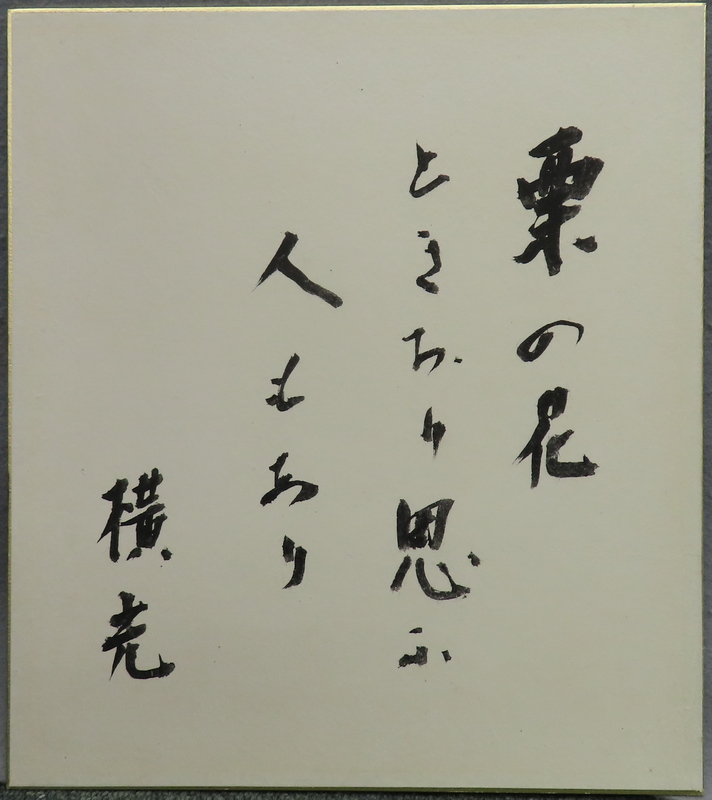 栗の花
ときおり思ふ
人もあり
横光